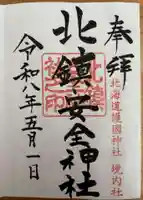 奉拝
北海道護國神社 境内社
北鎮安全神社
令和八年五月一日